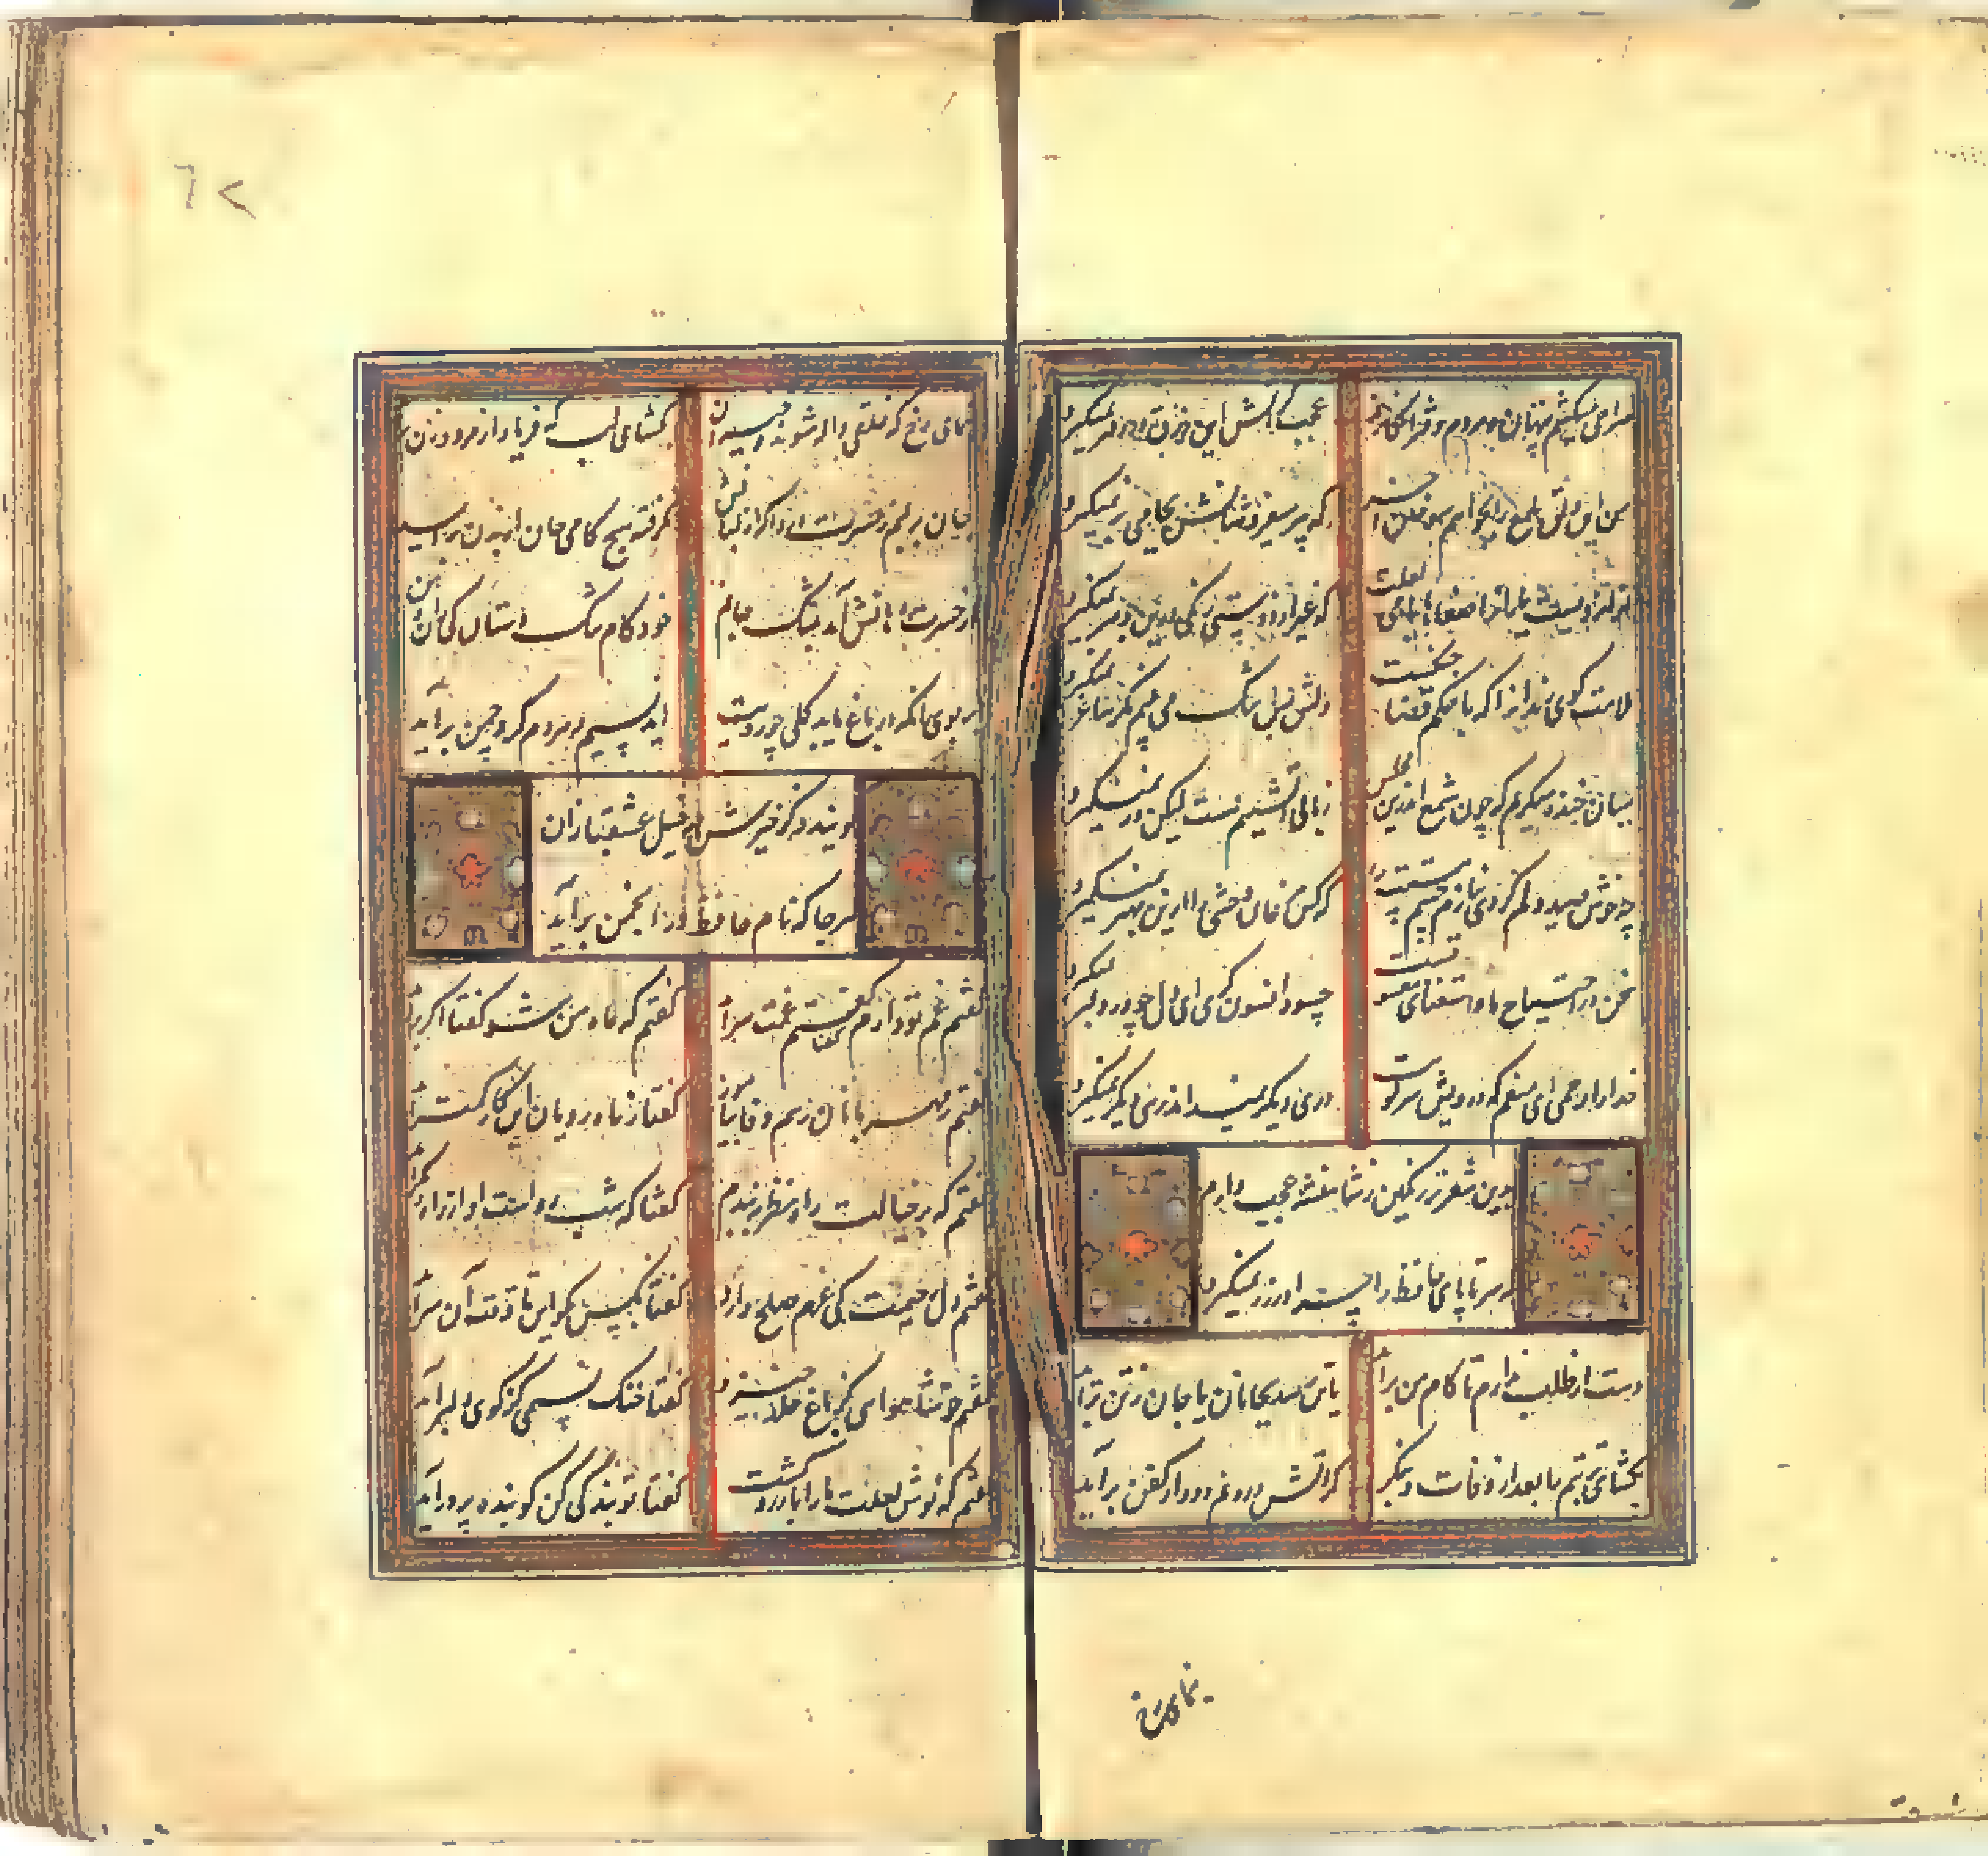 صراحی میکشم پنهان و مردم دفتر انکارند
عجب کر آتش این زرق در دفتر نمیگیرد
من این دلق ملمع را بخواهم سوختن
که پیر میفروشانش بجامی بر نمیگیرد
که غیر از راستی نقشی درین جوهر نمیگیرد
نصیحت گوی رندانرا که با حکم قضا جنکست
دلش بس تنک می بینم مکر ساغر نمیگیرد
میان خنده میکریم که چون شمع اندرین مجلس
زبان آتشینم هست لیکن در نمیگیرد
چه خوش صید دلم کردی بنازم چشم مستت را
که کس مرغان وحشی را ازین بهتر نمیگیرد
سخن در احتیاج ما و استغنای معشوقست
چه سود افسون کری ای دل چو در دلبر نمیگیرد
خدا را رحمی ای منعم که درویش سر کویت
دری دیگر نمیداند رهی دیگر نمیگیرد
بدین شعر تر رنگین ز شاهنشه عجب دارم
که سر تا پای حافظ را چرا در زر نمیگیرد
دست از طلب ندارم تا کام من برآید
یا تن رسد بجانان یا جان ز تن برآید
بکشای تربتم را بعد از وفات و بنکر
کز آتش درونم دود از کفن برآید
بنمای رخ
بنمای رخ که خلقی واله شوند و حیران
بکشای لب که فریاد از مرد و زن برآید
جان بر لبم ز حسرت در دل که از لبانش
نکرفته هیچ کامی جان از بدن برآید
از حسرت دهانش آمد بتنک جانم
خود کام تنک دستان کی زان دهن برآید
بر بوی آنکه در باغ یابد گلی چو رویت
آید نسیم و هر دم کرد چمن برآید
گویند ذکر خیرش در خیل عشقبازان
هر جا که نام حافظ در انجمن برآید
گفتم غم تو دارم گفتا غمت سرآید
گفتم که ماه من شو گفتا اگر برآید
گفتم ز مهرورزان رسم وفا بیاموز
گفتا ز ماه رویان این کار کمتر آید
گفتم که بر خیالت راه نظر ببندم
گفتا که شب روست او از راه دیگر آید
گفتم دل رحیمت کی عزم صلح دارد
گفتا مکوی با کس تا وقت آن سرآید
گفتم خوشا هوایی کز باغ خلد خیزد
گفتا خنک نسیمی کز کوی دلبر آید
گفتم که نوش لعلت ما را بآرزو کشت
گفتا تو بندگی کن کو بنده پرور آید